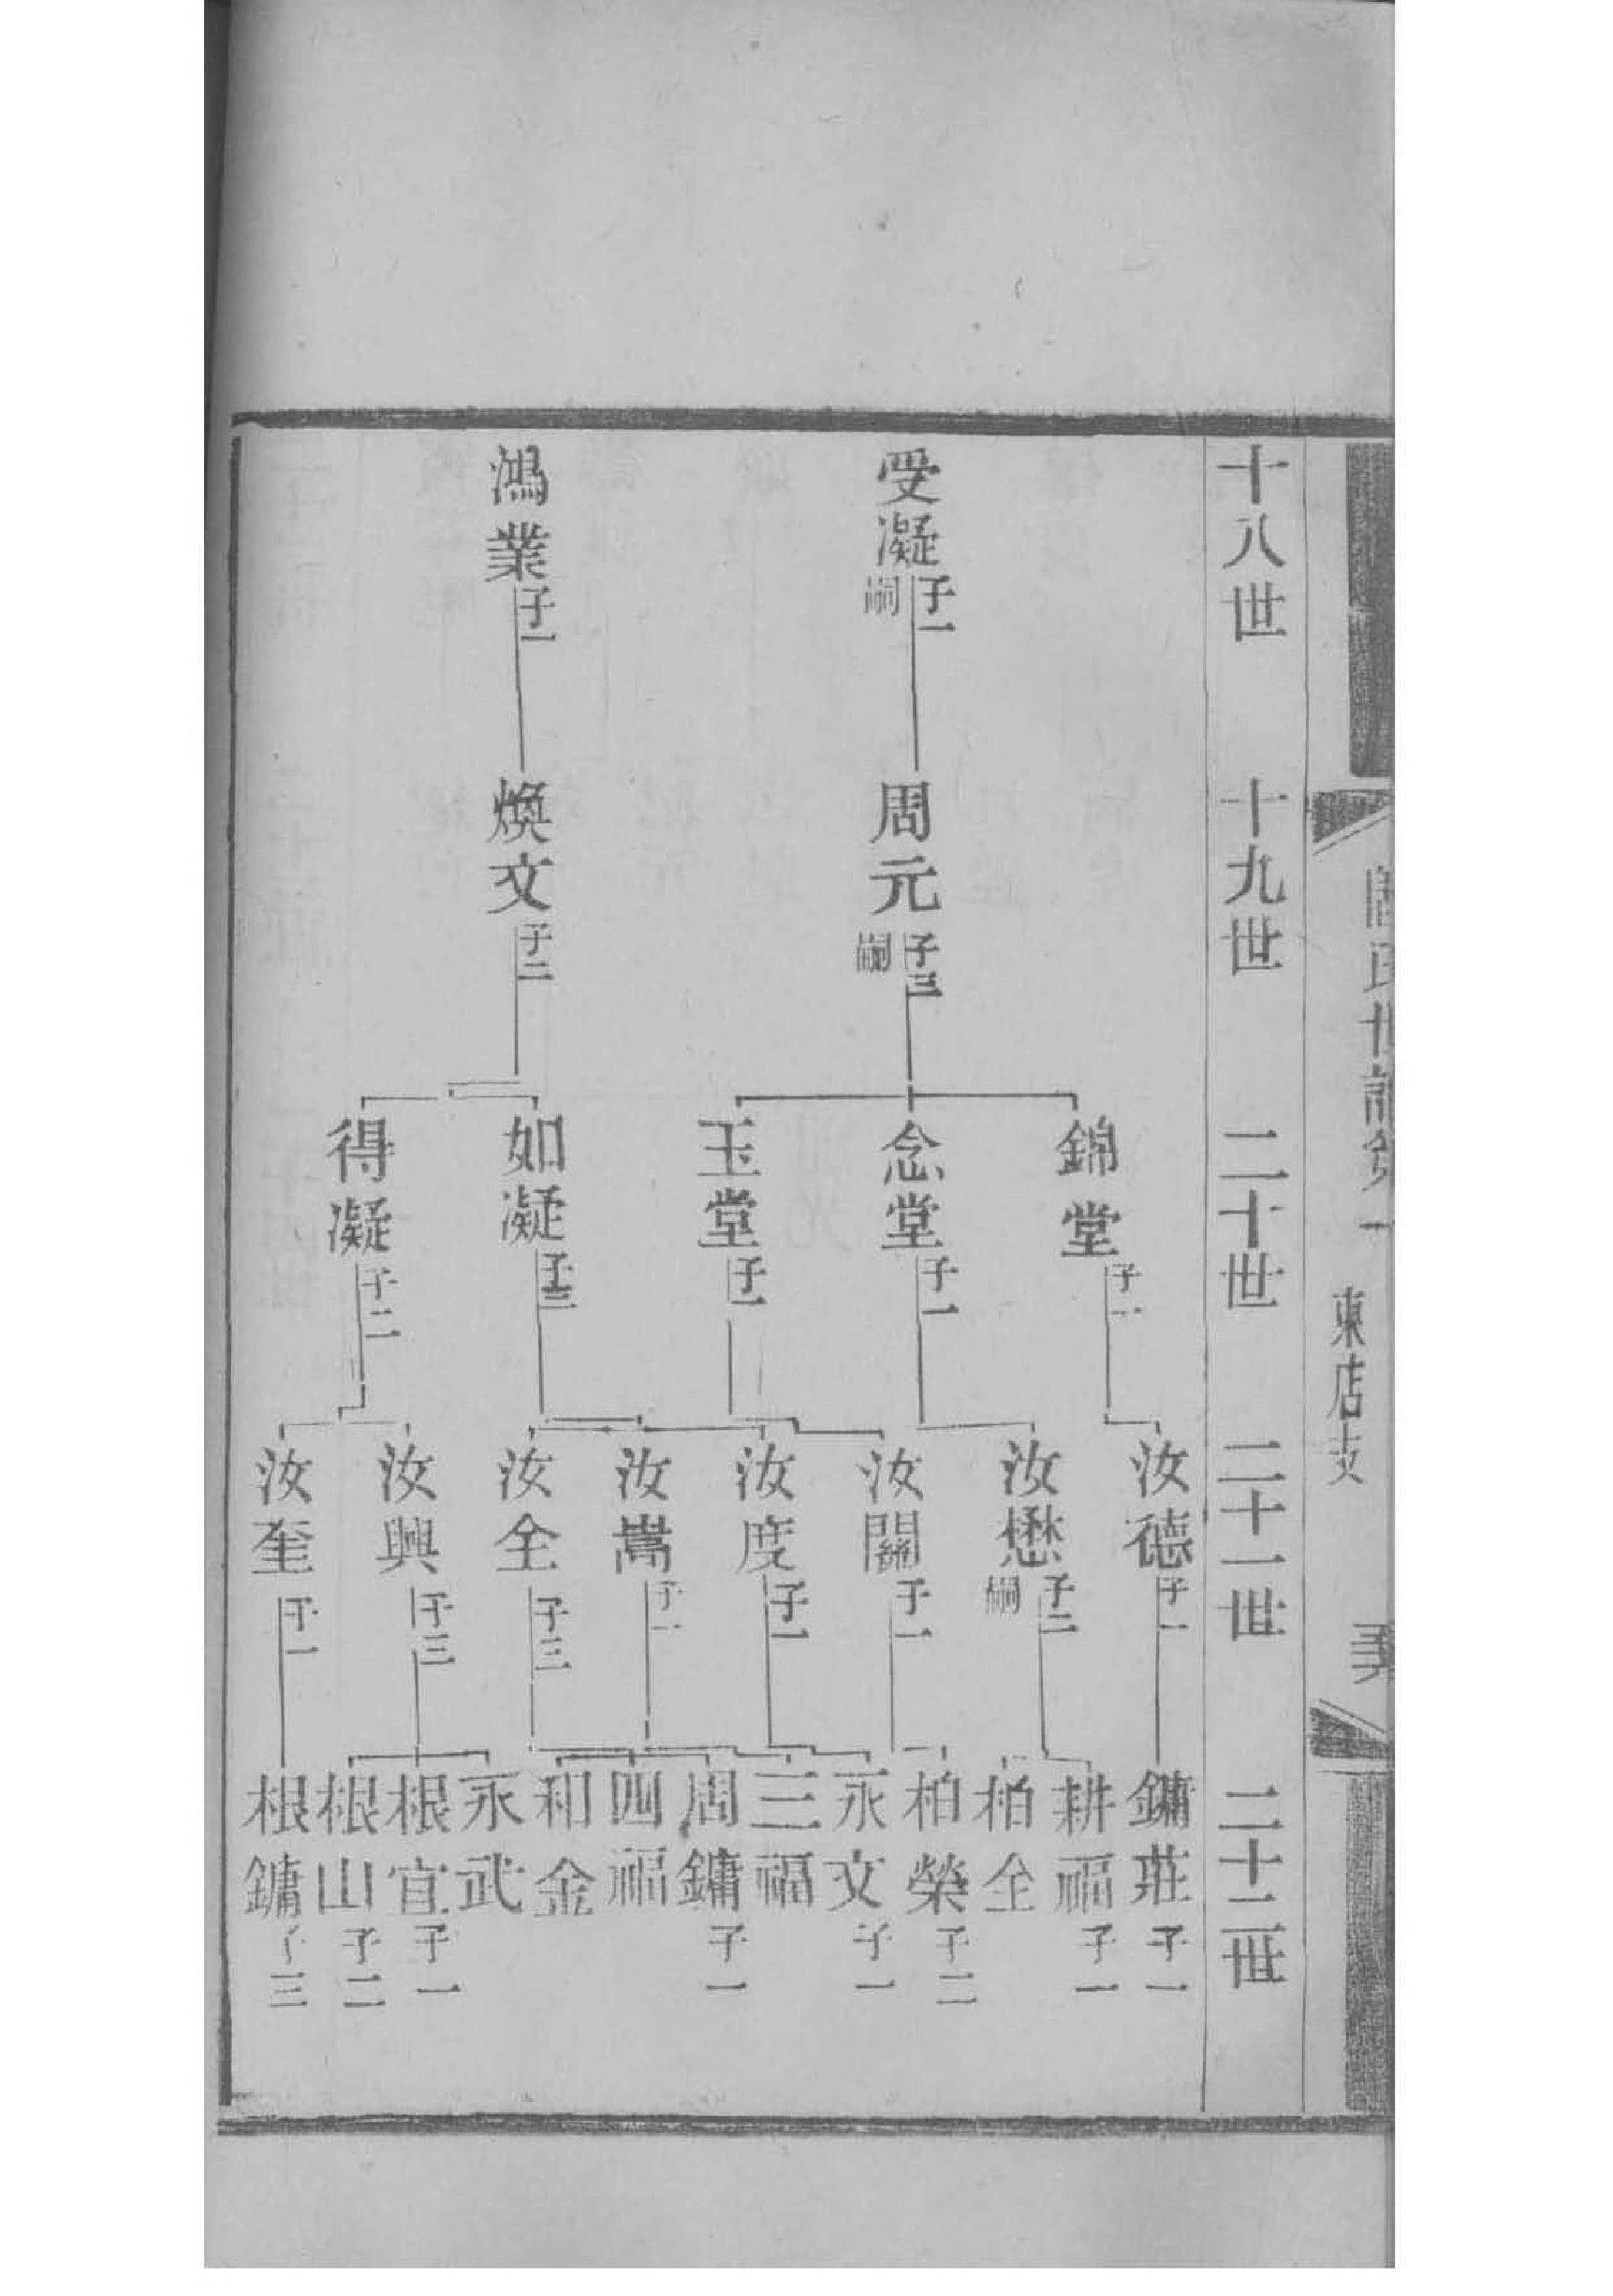 氏世譜卷一
東店支
十八世
十九世
二十世
二十一世
二十二世
受凝 子一 嗣
鴻業 子一
周元 子三 嗣
煥文 子二
錦堂 子一
念堂 子一
玉堂 子一
如凝 子三
得凝 子二
汝德 子一
汝懋 子二 嗣
汝關 子一
汝度 子一
汝嵩 子一
汝全 子三
汝興 子三
汝奎 子一
鏞莊 子一
耕福 子一
柏全
柏榮 子二
永文 子一
三福
周鏞 子一
四福
和金
永武
根宜 子一
根山 子二
根鏞 子三